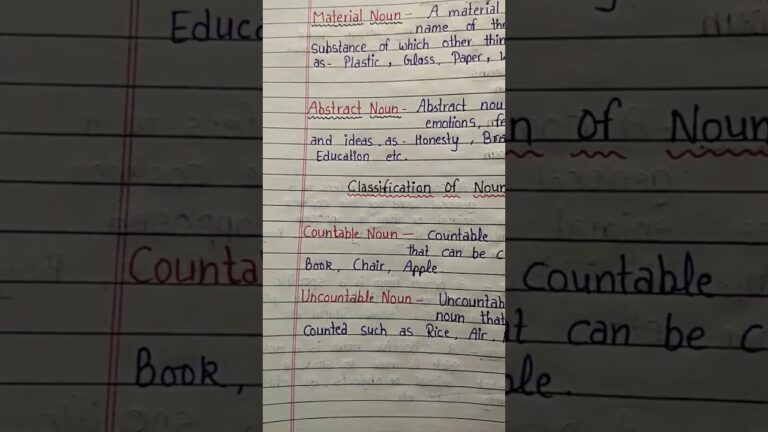 Material Noun - A material
name of the
substance of which other thin
as - Plastic, Glass, Paper,
Abstract Noun - Abstract nou
emotions, fe
and ideas, as - Honesty, Bra
Education etc.
Classification of Noun
Countable Noun - Countable
that can be c
Book, Chair, Apple
Uncountable Noun - Uncountab
noun that
Counted such as Rice, Air,
Educ
n Of Noun
Counta
Countable
t can be c
Book,
ple.